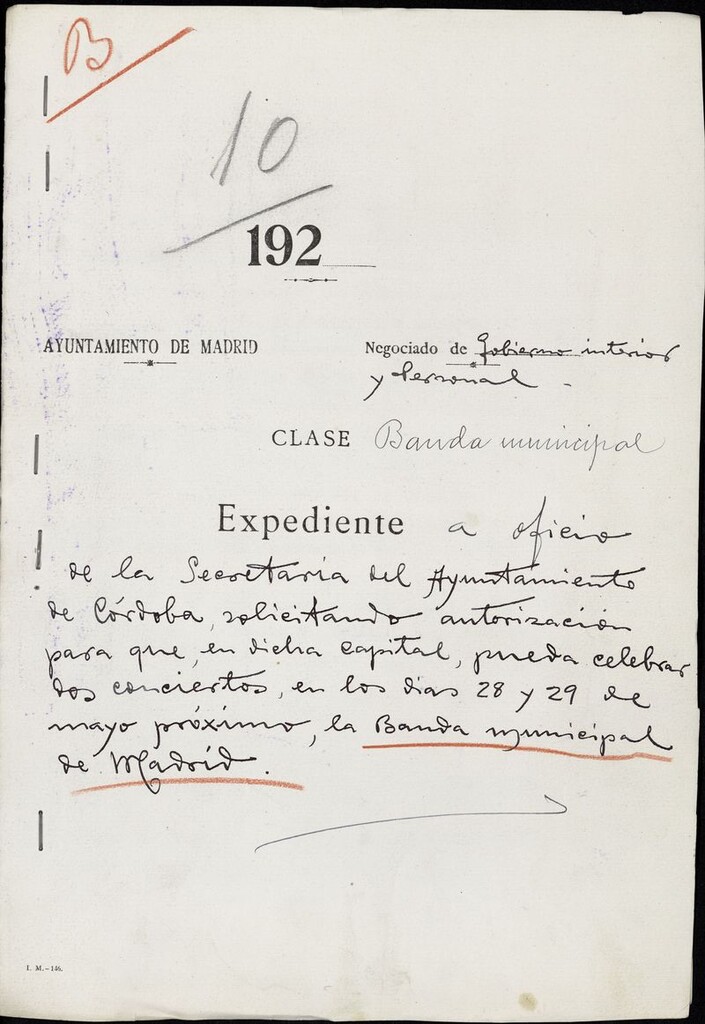 B
10
192
AYUNTAMIENTO DE MADRID
Negociado de Gobierno interior
y Personal -
CLASE Banda municipal
Expediente a oficio
de la Secretaría del Ayuntamiento
de Córdoba, solicitando autorización
para que, en dicha capital, pueda celebrar
dos conciertos, en los dias 28 y 29 de
mayo próximo, la Banda municipal
de Madrid.
I. M.-146.